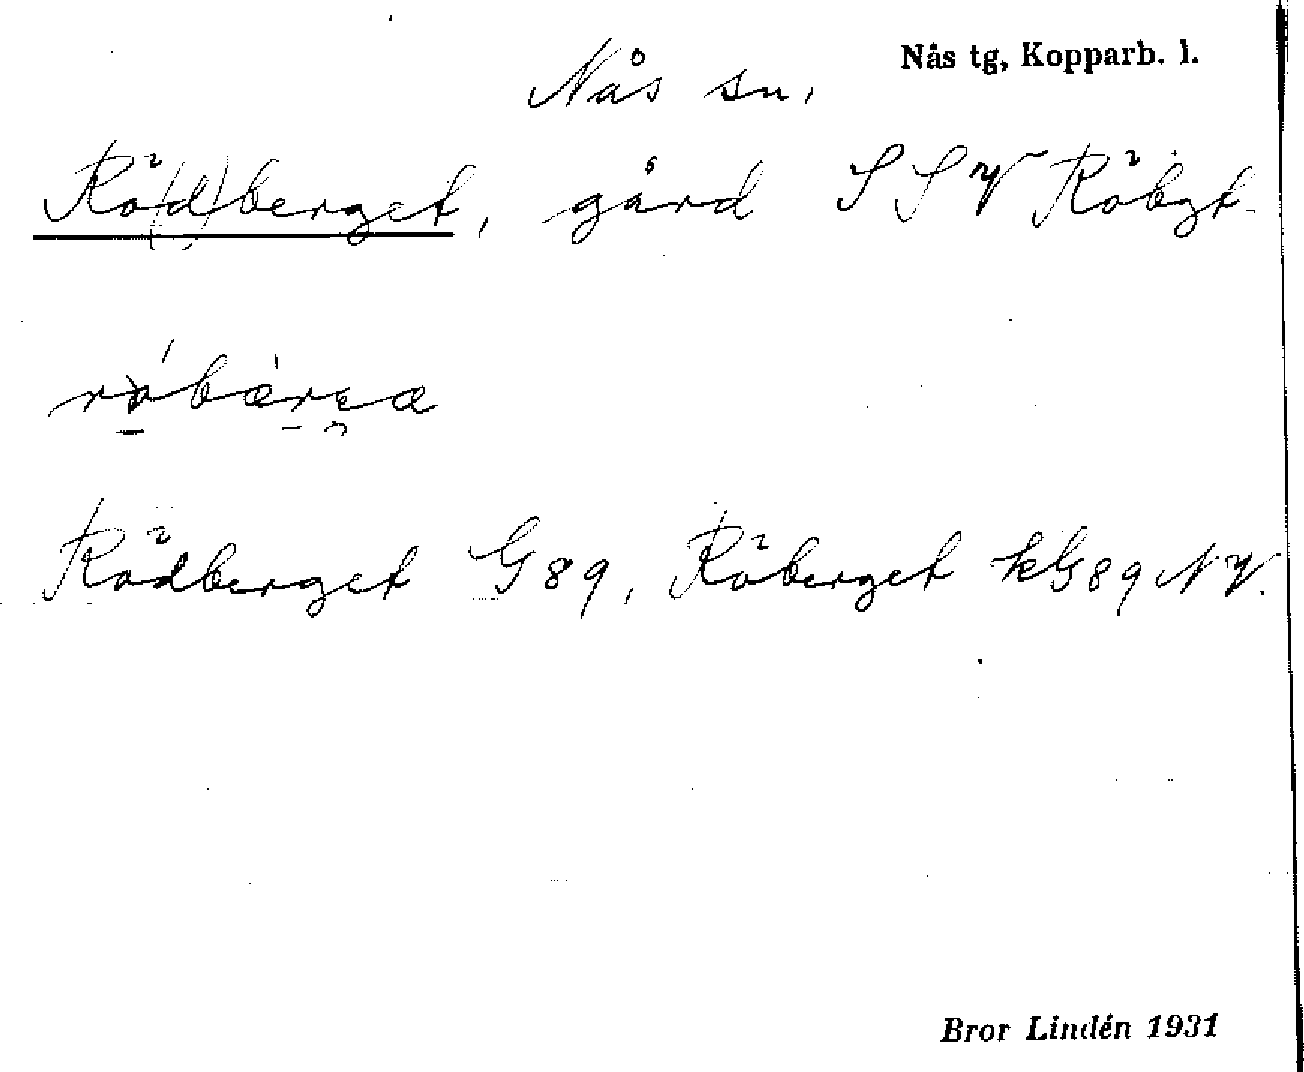 Nås tg, Kopparb. l.
Nås sn,
Rö(d)berget, gård SSV Röbgt.
Rödberget G89, Röberget kG89 NV.
Bror Lindén 1931